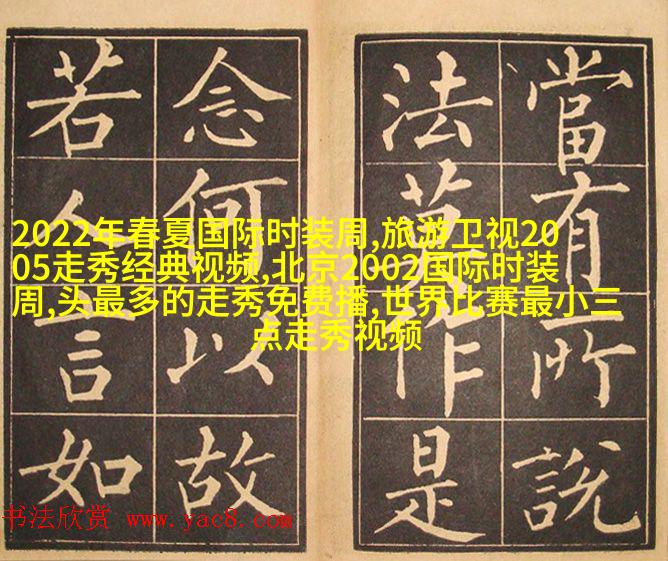 當有所說
法莫作是
念何以故
若人言如
2022年春夏国际时装周,旅游卫视20
05走秀经典视频,北京2002国际时装
周,头最多的走秀免费播,世界比赛最小三
点走秀视频
书法欣赏 www.yac8.com